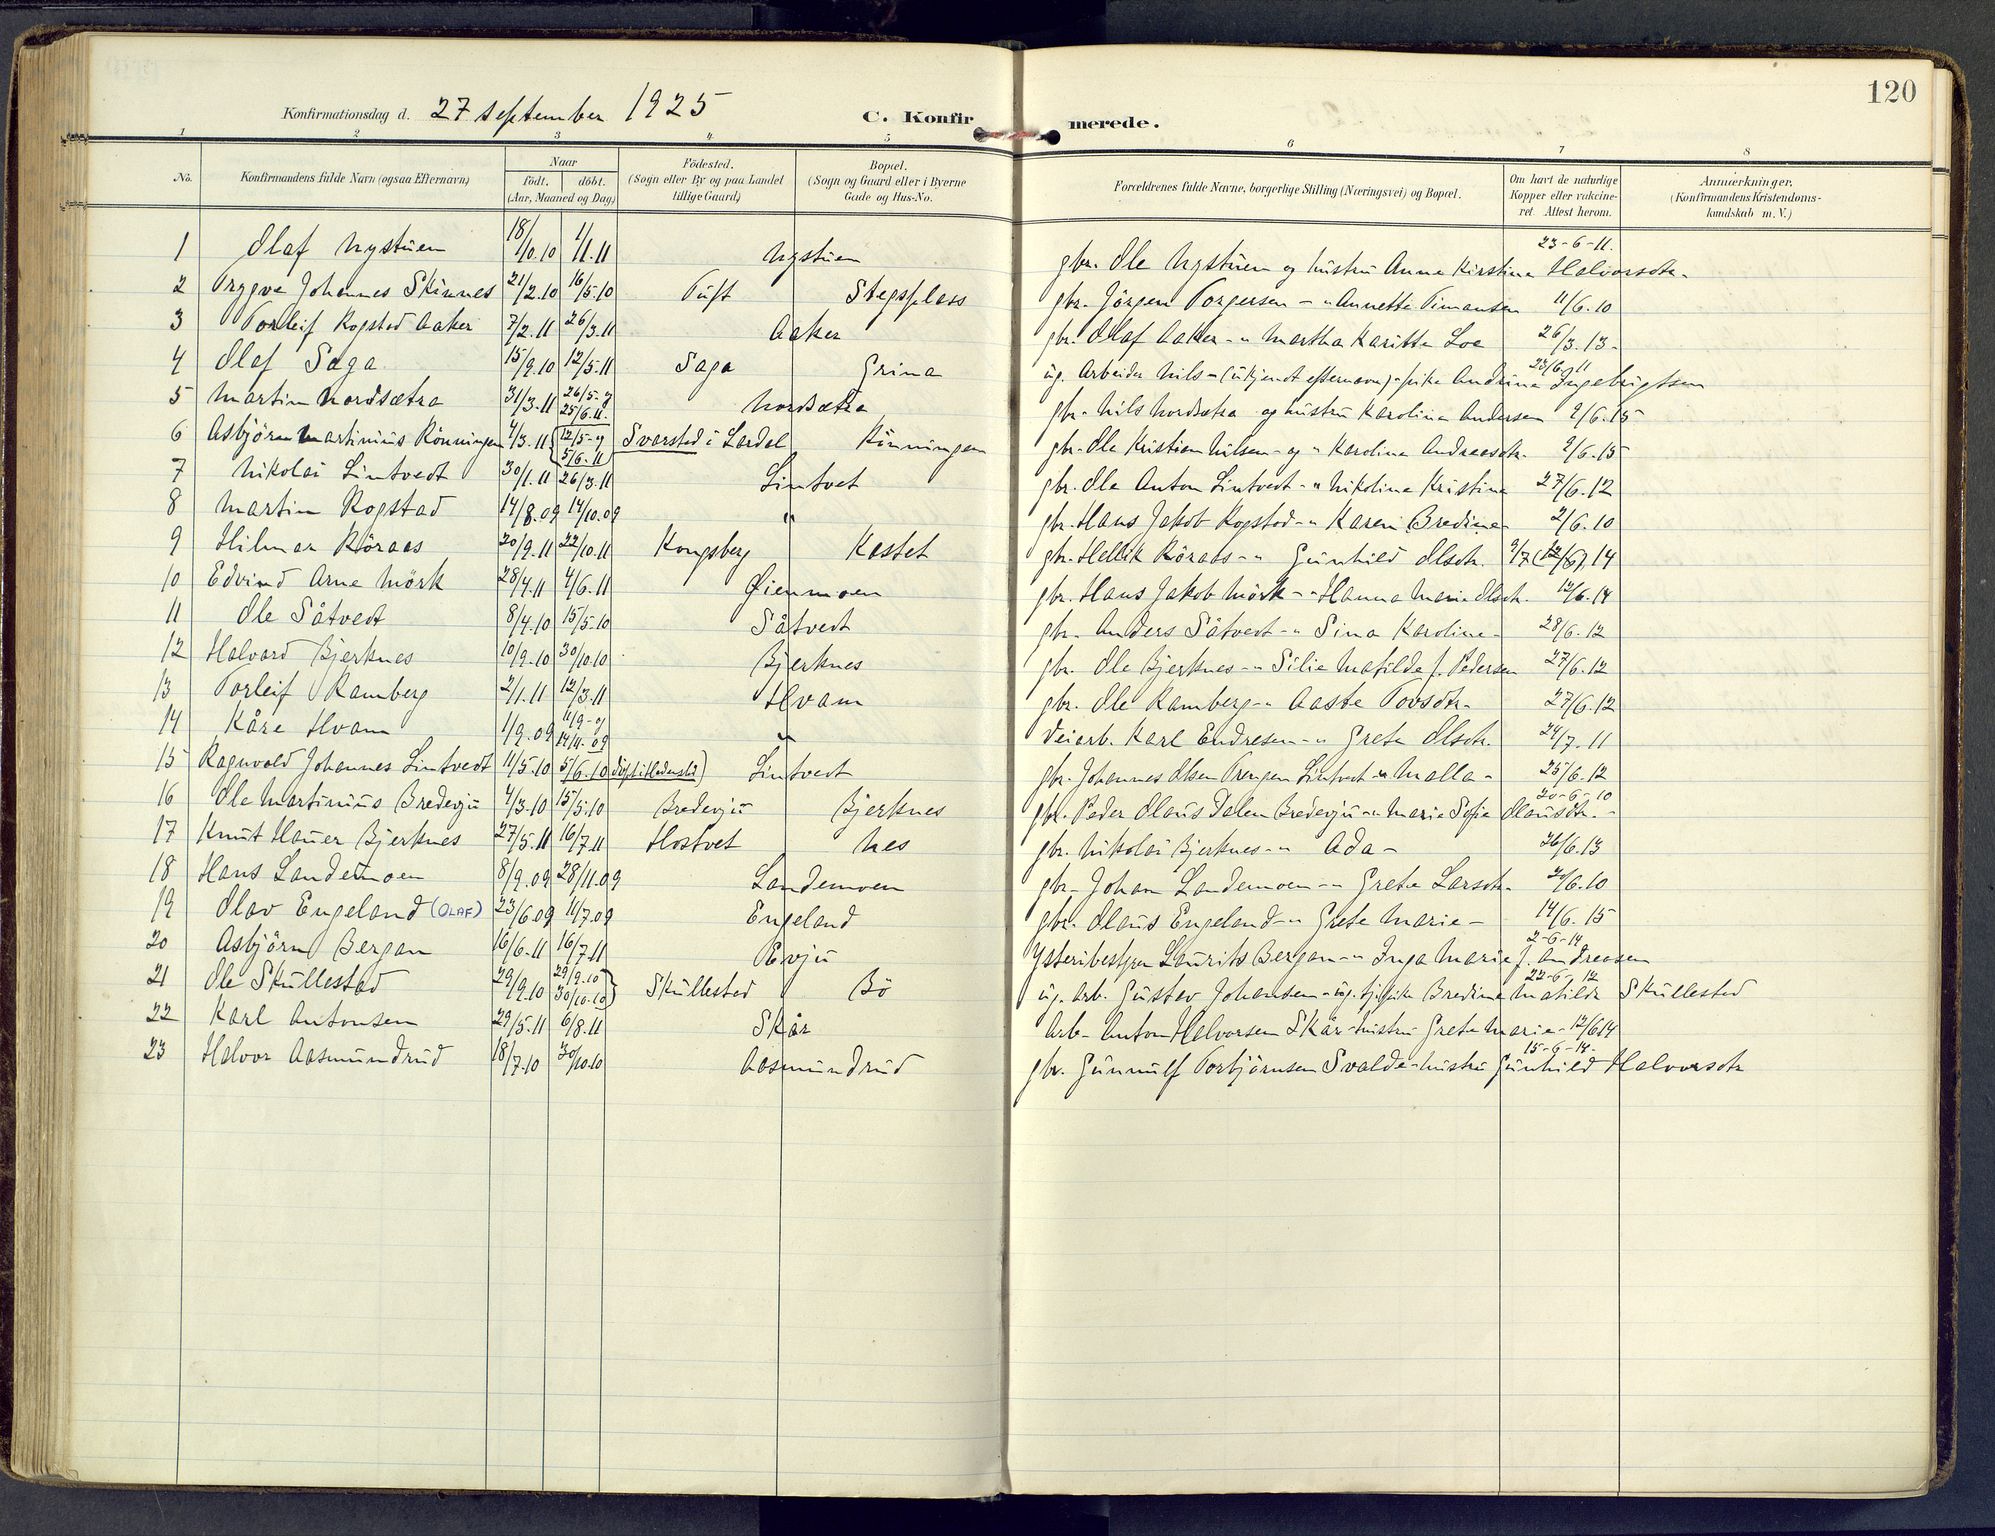 120
Konfirmationsdag d. 27 september 1925 C. Konfirmerede.
1 2 3 4 5 6 7 8
No. Konfirmandens fulde Navn (ogsaa Efternavn) Naar født. døbt. (Aar, Maaned og Dag) Fødested. (Sogn eller By og paa Landet tillige Gaard) Bopæl. (Sogn og Gaard eller i Byerne Gade og Hus-No. Forældrenes fulde Navne, borgerlige Stilling (Næringsvei) og Bopæl. Om havt de naturlige Kopper eller vaccineret. Attest herom. Anmærkninger, (Konfirmandens Kristendomskundskab m. V.)
1 Olaf Nystuen 18/10.10 1/1.11 Nystuen gbr. Ole Nystuen og hustru Anne Kirstine Halvorsdtr. 23-6-11.
2 Trygve Johannes Skinnes 21/2.10 16/5.10 Tuft Stegsplass gbr. Jörgen Torgersen - " Annette Timansen 11/6.10
3 Torleif Rogstad Aaker 7/2.11 26/3.11 Aaker gbr. Olaf Aaker - " Martha Karitte Loe 26/3.13-
4 Olaf Saga 15/9.10 12/5.11 Saga Grina ug. Arbeider Nils - (ukjendt efternavn) - pike Andrine Ingebrigtsen 23/6.11
5 Martin Nordsætra 31/3.11 26/5-11 25/6.11. Nordsætra gbr. Nils Nordsætra og hustru Karoline Andersen 2/6.15
6 Asbjörn Martinius Rönningen 4/3.11 12/5-11 5/6.11 Svarstad i Lardal Rönningen gbr. Ole Kristian Nilsen - og " Karoline Andreasdtr. 2/6.15
7 Nikolai Lintvedt 30/1.11 26/3.11 Lintvet gbr. Ole Anton Lintvedt - " Nikoline Kristine 27/6.12
8 Martin Rogstad 14/8.09 14/10.09 " gbr. Hans Jakob Rogstad - " Karen Bredine - 2/6.10
9 Hilmar Röraas 20/9.11 22/10.11 Kongsberg Kastet gbr. Hellik Röraas - " Gunhild Olsdtr. 9/7 (12/6).14
10 Edvind Arne Mörk 28/4.11 4/6.11 Øienmoen gbr. Hans Jakob Mörk - " Hanna Marie Olsdtr. 12/6.14
11 Ole Såtvedt 8/4.10 15/5.10 Såtvedt gbr. Anders Såtvedt - " Sina Karoline - 28/6.12
12 Halvard Bjerknes 10/9.10 30/10.10 Bjerknes gbr. Ole Bjerknes - " Silie Matilde f. Pedersen 27/6.12
13 Torleif Ramberg 2/1.11 12/3.11 Hvam gbr. Ole Ramberg - " Aaste Tovsdtr. 27/6.12
14 Kåre Hvam 1/9.09 11/9-09 14/11-09 " Veiarb. Karl Endresen - " Grete Olsdtr. 24/7.11
15 Ragnvald Johannes Lintvedt 11/5.10 5/6.10 Lintvedt gbr. Johannes Olsen Trengen Lintvedt " Malla - 25/6.12
16 Ole Martinius Bredevju 4/3.10 15/5.10 Bredevju Bjerknes gbr. Peder Olaus Dalen Bredevju - " Marie Sofie Olausdtr. - 20-6-10
17 Knut Hauer Bjerknes 27/5.11 16/7.11 Hostvet Nes gbr. Nikolai Bjerknes - " Ada - 26/6.13
18 Hans Landemoen 8/9.09 28/11.09 Landemoen gbr. Johan Landemoen - " Grete Larsdtr. 20/6.10
19 Olav Engeland (OLAF) 23/6.09 11/7.09 Engeland gbr. Olaus Engeland - " Grete Marie - 14/6.15
20 Asbjörn Bergan 16/6.11 16/7.11 Evju Ysteribestyrer Laurits Bergan - " Inga Marie f. Andreasen 2-6-14
21 Ole Skullestad 29/9.10 29/9.10 30/10.10 Skullestad Bö ug. Arb. Gustav Johansen - ug. tj. pike Bredine Matilde Skullestad 22-6-12
22 Karl Antonsen 29/5.11 6/8.11 Skår Arb. Anton Halvorsen Skår - hustru Grete Marie - 12/6.14
23 Halvor Aasmundrud 18/7.10 30/10.10 Aasmundrud gbr. Gunnulf Torbjörnsen Svalde - hustru Gunhild Halvorsdtr 15-6-14-